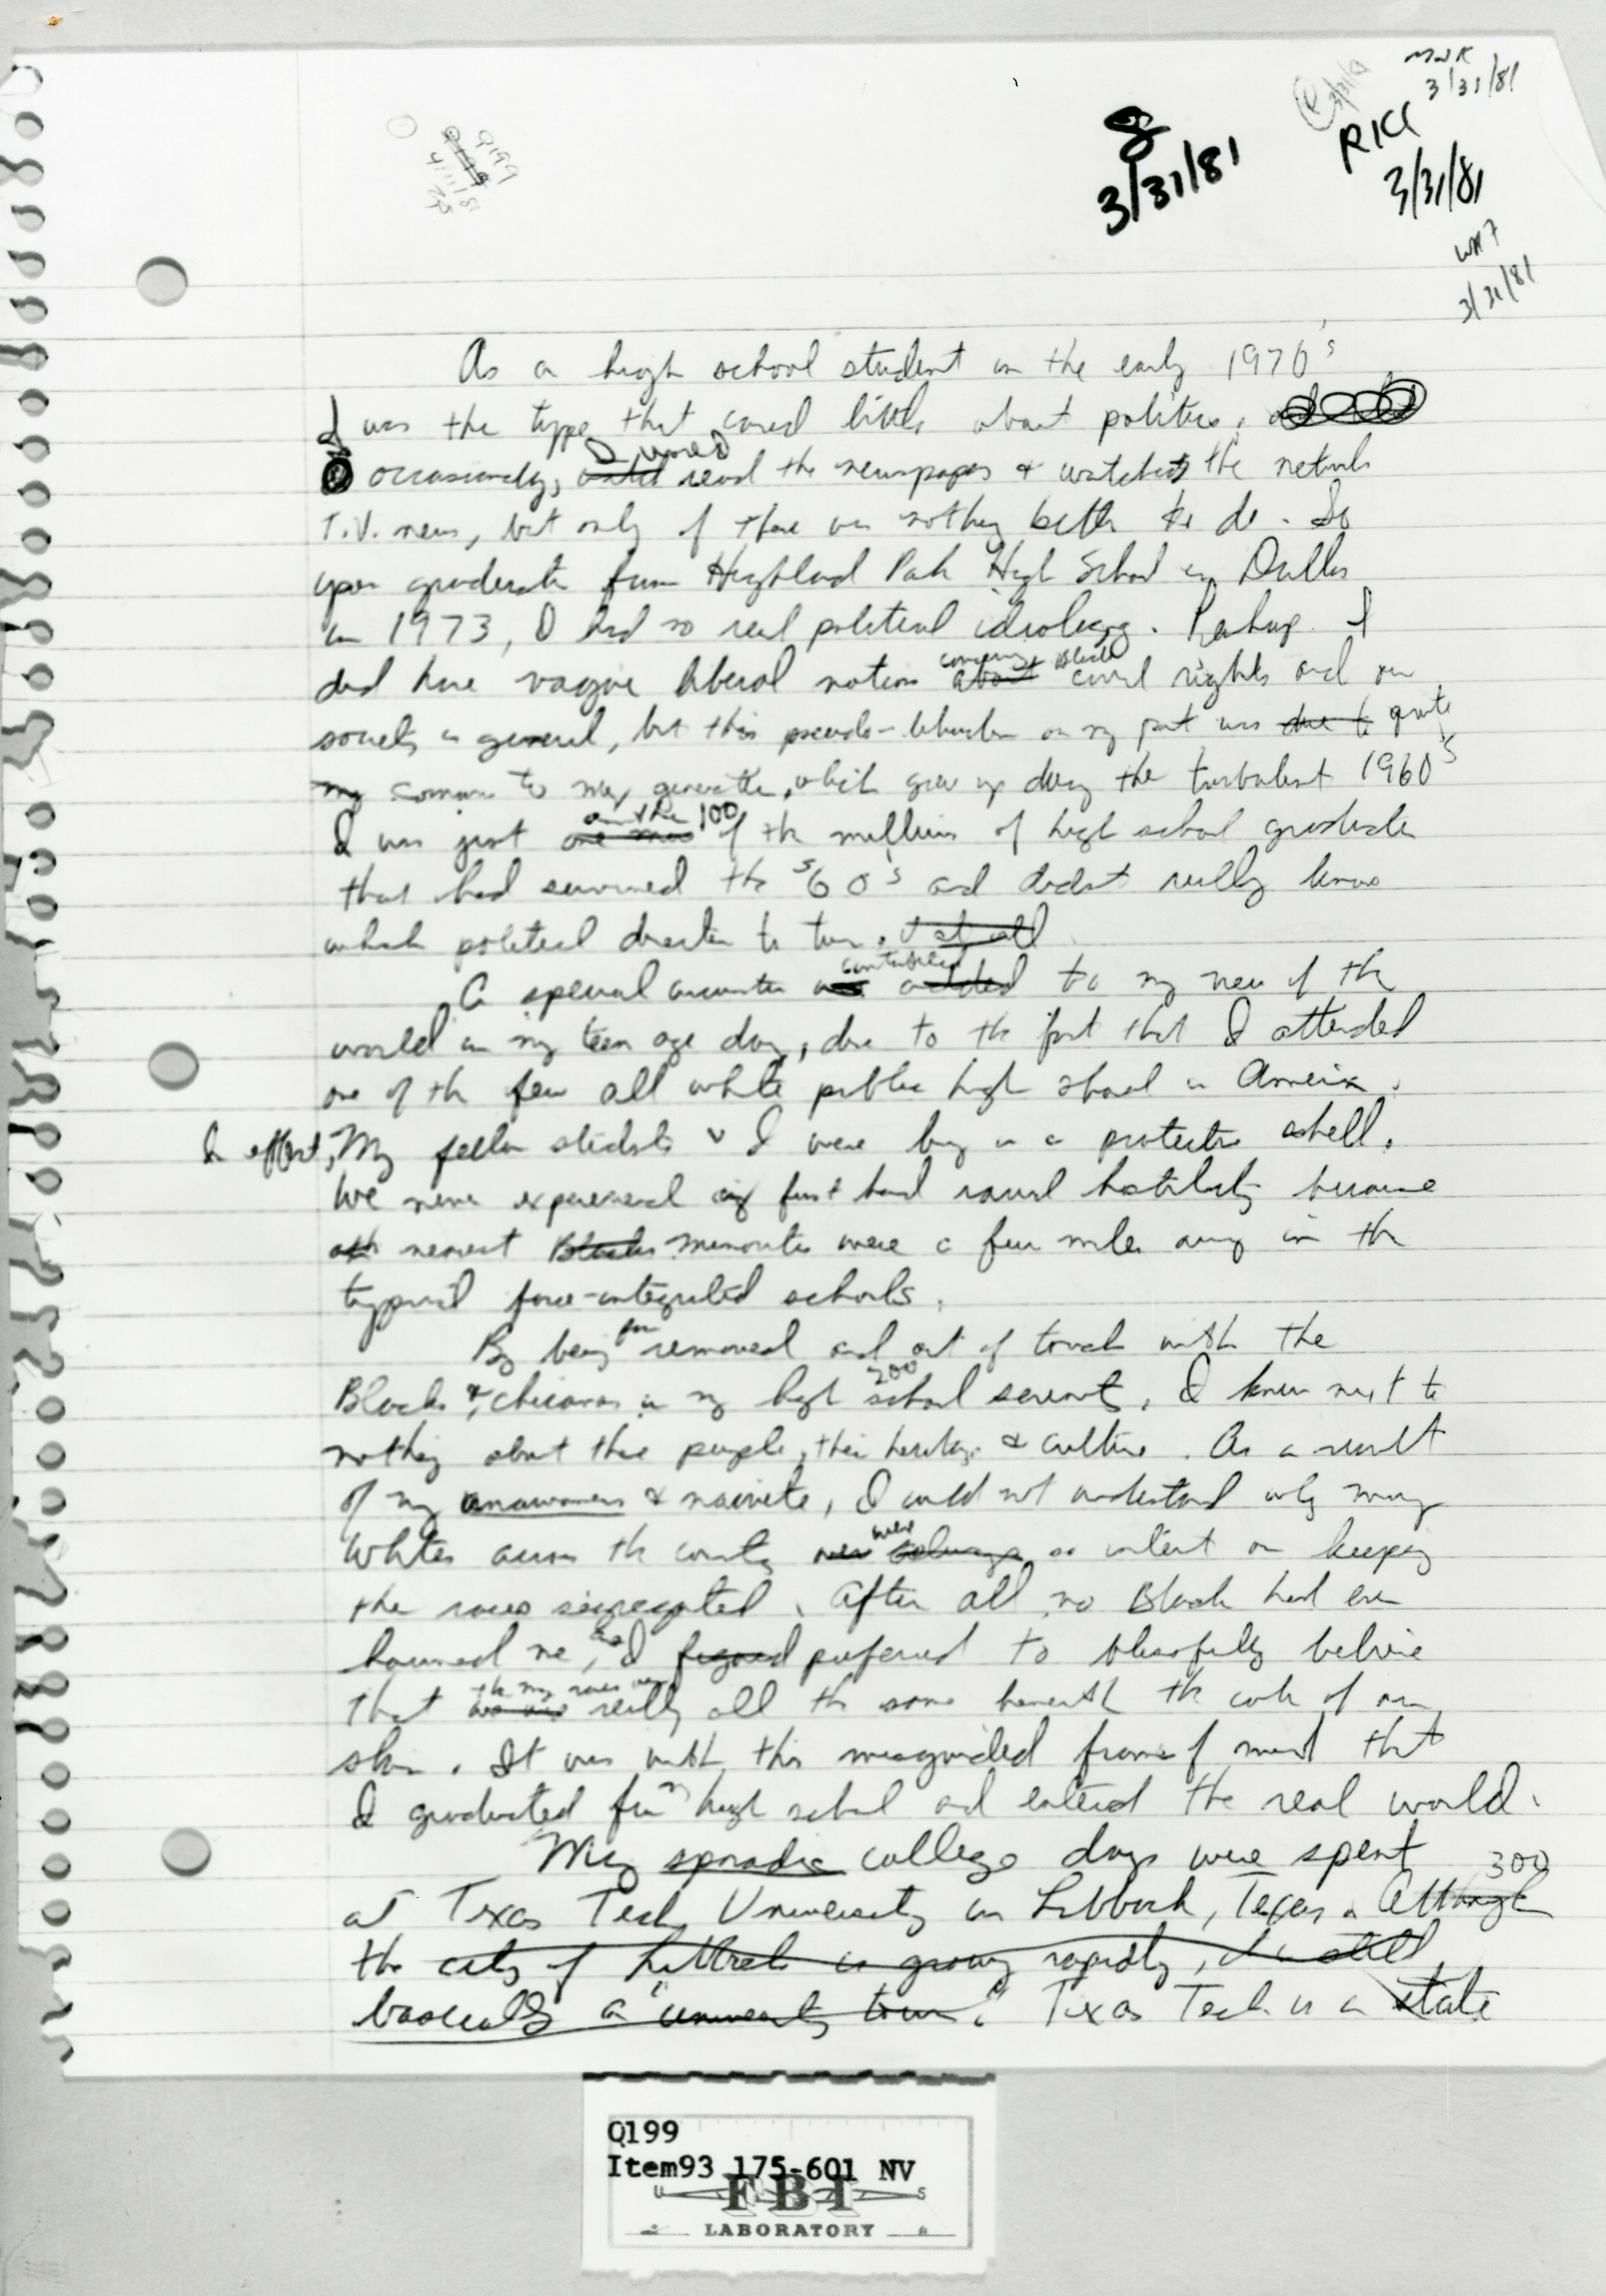 MWK
3/31/81
RKC
3/31/81
3/31/81
3/31/81
Q199
As a high school student in the early 1970's
I was the type that cared little about politics,
occasionaly, I wured read the newspapers & watched the network
T.V. news, but only if there was nothing better to do. So
upon graduate from Highland Park High School in Dallas
in 1973, I had no real political ideology. Perhaps I
did have vague liberal notions about concerning Black civil rights and our
society in general, but this pseudo-liberalism on my part was due to quite
my common to my generation, which grew up during the turbulent 1960's
I was just one more another 100 of the millions of high school graduates
that had survived the '60's and didn't really know
which political direction to turn. at all
A special encounter was added contributed to my view of the
world in my teen age days, due to the fact that I attended
one of the few all white public high school in America.
In effect, My fellow students & I were living in a protective shell.
We never experienced any first hand racial hostility because
our nearest Blacks minorities were a few miles away in the
typical force-integrated schools.
By being far removed and out of touch with the
Blacks & chicanos in my high school 200 serenity, I knew next to
nothing about these people, their heritage & culture. As a result
of my unawareness & naivete, I could not understand why many
Whites across the country were always were so intent on keeping
the races segregated. After all no Black had ever
harmed me, and I figured preferred to blissfully believe
that we are the many races were really all the same beneath the color of our
skin. It was with this misguided frame of mind that
I graduated from high school and entered the real world.
My sporadic college days were spent
at Texas Tech University in Lubbock, Texas. Although 300
the city of Lubbock is growing rapidly, it is still
basically a "university town". Texas Tech is a state
Q199
Item93 175-601 NV
U S
FBI
LABORATORY